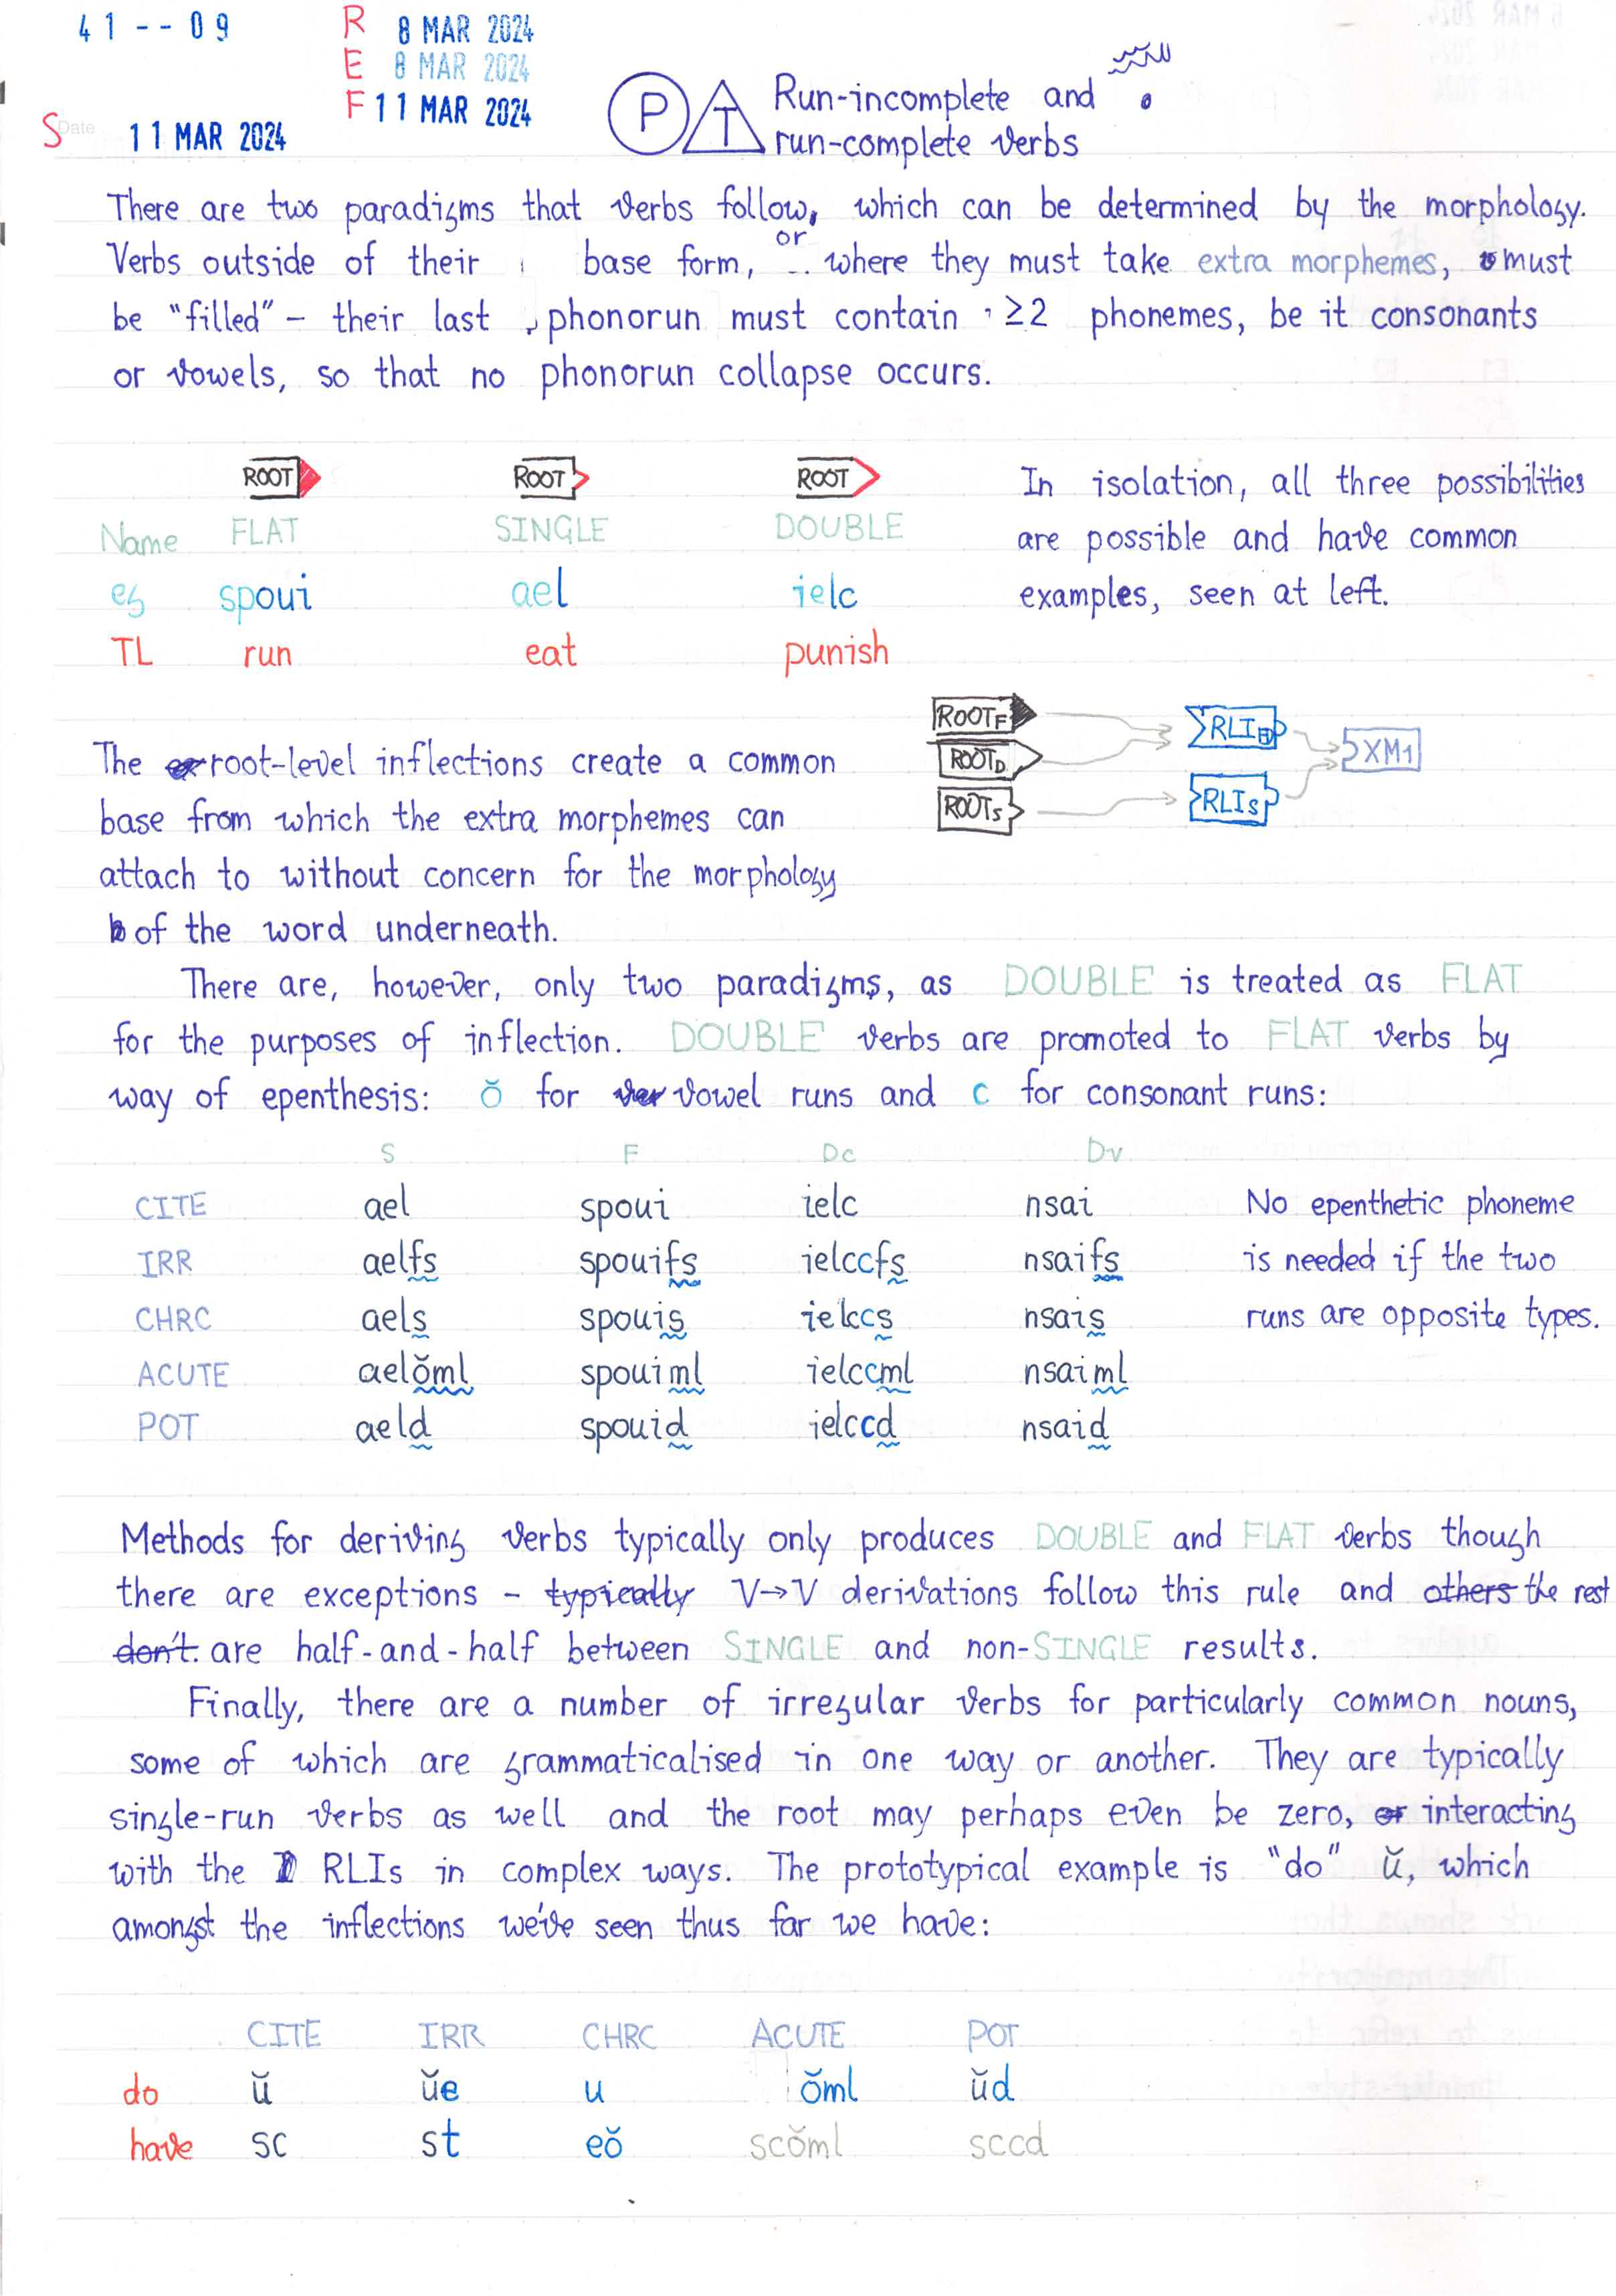 41--09
R 8 MAR 2024
E 8 MAR 2024
F 11 MAR 2024
S Date 11 MAR 2024
P T Run-incomplete and
run-complete verbs
There are two paradigms that verbs follow, which can be determined by the morphology.
Verbs outside of their base form, or where they must take extra morphemes, must
be "filled" – their last phonorun must contain ≥2 phonemes, be it consonants
or vowels, so that no phonorun collapse occurs.
ROOT ROOT ROOT
Name FLAT SINGLE DOUBLE
eg spoui ael ielc
TL run eat punish
In isolation, all three possibilities
are possible and have common
examples, seen at left.
ROOTF RLID XM1
ROOTD
ROOTS RLIS
The root-level inflections create a common
base from which the extra morphemes can
attach to without concern for the morphology
of the word underneath.
There are, however, only two paradigms, as DOUBLE is treated as FLAT
for the purposes of inflection. DOUBLE verbs are promoted to FLAT verbs by
way of epenthesis: ŏ for vowel runs and c for consonant runs:
S F Dc Dv
CITE ael spoui ielc nsai
IRR aelfs spouifs ielccfs nsaifs
CHRC aels spouis ielccs nsais
ACUTE aelŏml spouiml ielccml nsaiml
POT aeld spouid ielccd nsaid
No epenthetic phoneme
is needed if the two
runs are opposite types.
Methods for deriving verbs typically only produces DOUBLE and FLAT verbs though
there are exceptions – typically V→V derivations follow this rule and others the rest
don't. are half-and-half between SINGLE and non-SINGLE results.
Finally, there are a number of irregular verbs for particularly common nouns,
some of which are grammaticalised in one way or another. They are typically
single-run verbs as well and the root may perhaps even be zero, or interacting
with the RLIs in complex ways. The prototypical example is "do" ŭ, which
amongst the inflections we've seen thus far we have:
CITE IRR CHRC ACUTE POT
do ŭ ŭe u ŏml ŭd
have sc st eŏ scŏml sccd